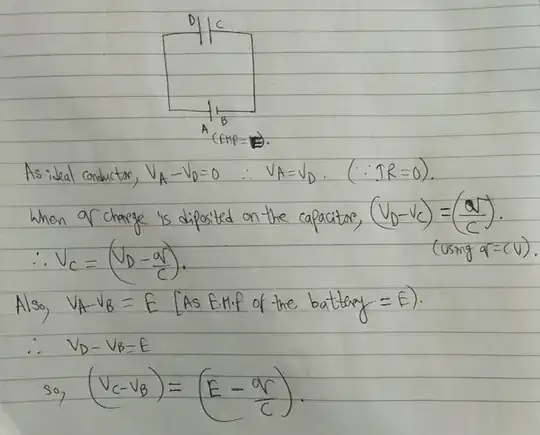 D C
A B
(EMF=E).
As ideal conductor, V_A - V_D = 0 ∴ V_A = V_D. (∵ IR = 0).
When q charge is diposited on the capacitor, (V_D - V_C) = (q/C).
∴ V_C = (V_D - q/C). (using q = CV).
Also, V_A - V_B = E [As E.M.F of the battery = E).
∴ V_D - V_B = E
so, (V_C - V_B) = (E - q/C).